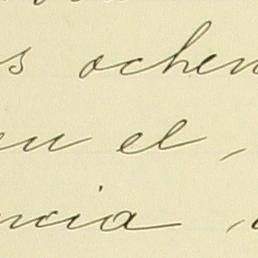 s ochen
en el,
ncia,